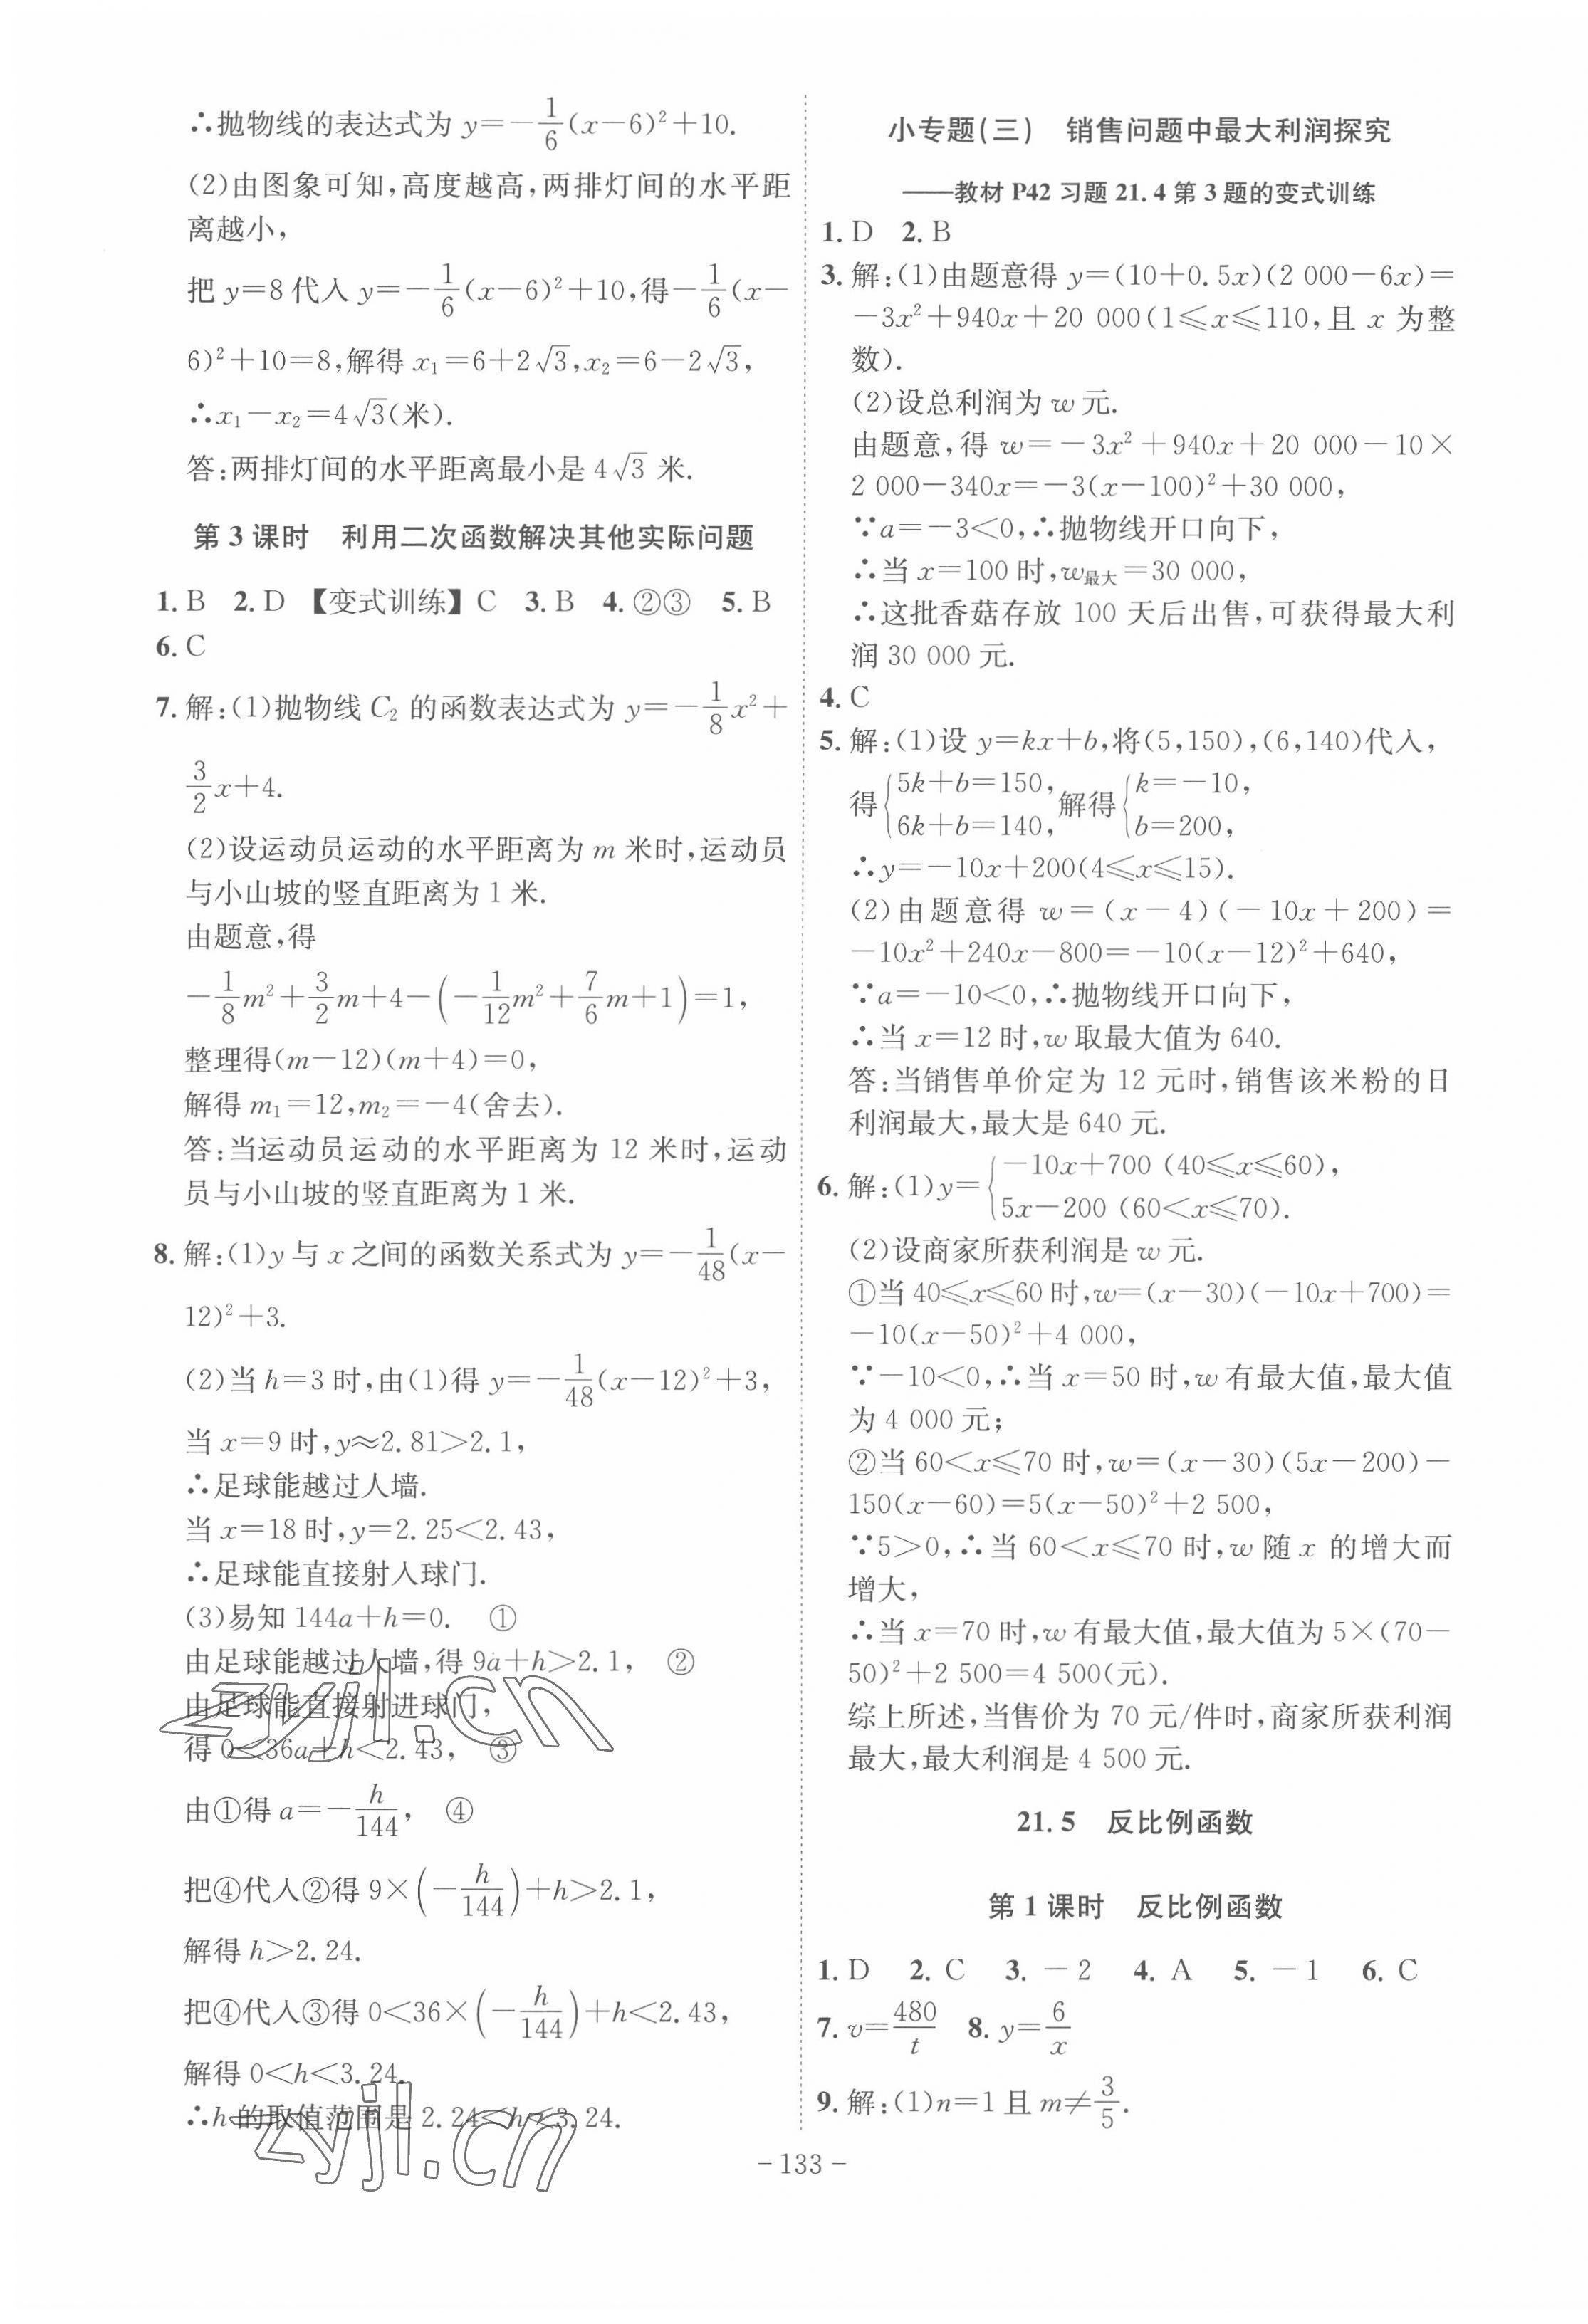 ∴抛物线的表达式为 y=-1/6(x-6)²+10.
(2)由图象可知,高度越高,两排灯间的水平距
离越小,
把 y=8 代入 y=-1/6(x-6)²+10,得-1/6(x-
6)²+10=8,解得 x₁=6+2√3,x₂=6-2√3,
∴x₁-x₂=4√3(米).
答:两排灯间的水平距离最小是 4√3 米.
第 3 课时 利用二次函数解决其他实际问题
1. B 2. D 【变式训练】C 3. B 4. ②③ 5. B
6. C
7. 解:(1)抛物线 C₂ 的函数表达式为 y=-1/8x²+
3/2x+4.
(2)设运动员运动的水平距离为 m 米时,运动员
与小山坡的竖直距离为 1 米.
由题意,得
-1/8m²+3/2m+4-(-1/12m²+7/6m+1)=1,
整理得(m-12)(m+4)=0,
解得 m₁=12,m₂=-4(舍去).
答:当运动员运动的水平距离为 12 米时,运动
员与小山坡的竖直距离为 1 米.
8. 解:(1)y 与 x 之间的函数关系式为 y=-1/48(x-
12)²+3.
(2)当 h=3 时,由(1)得 y=-1/48(x-12)²+3,
当 x=9 时,y≈2.81>2.1,
∴足球能越过人墙.
当 x=18 时,y=2.25<2.43,
∴足球能直接射入球门.
(3)易知 144a+h=0. ①
由足球能越过人墙,得 9a+h>2.1, ②
由足球能直接射进球门,
得 0<36a+h<2.43, ③
由①得 a=-h/144, ④
把④代入②得 9×(-h/144)+h>2.1,
解得 h>2.24.
把④代入③得 0<36×(-h/144)+h<2.43,
解得 0<h<3.24.
∴h 的取值范围是 2.24<h<3.24.
小专题(三) 销售问题中最大利润探究
——教材 P42 习题 21.4 第 3 题的变式训练
1. D 2. B
3. 解:(1)由题意得 y=(10+0.5x)(2 000-6x)=
-3x²+940x+20 000(1≤x≤110,且 x 为整
数).
(2)设总利润为 w 元.
由题意,得 w=-3x²+940x+20 000-10×
2 000-340x=-3(x-100)²+30 000,
∵a=-3<0,∴抛物线开口向下,
∴当 x=100 时,w最大=30 000,
∴这批香菇存放 100 天后出售,可获得最大利
润 30 000 元.
4. C
5. 解:(1)设 y=kx+b,将(5,150),(6,140)代入,
得{5k+b=150, 6k+b=140, 解得{k=-10, b=200,
∴y=-10x+200(4≤x≤15).
(2)由题意得 w=(x-4)(-10x+200)=
-10x²+240x-800=-10(x-12)²+640,
∵a=-10<0,∴抛物线开口向下,
∴当 x=12 时,w 取最大值为 640.
答:当销售单价定为 12 元时,销售该米粉的日
利润最大,最大是 640 元.
6. 解:(1)y={-10x+700 (40≤x≤60), 5x-200 (60<x≤70).
(2)设商家所获利润是 w 元.
①当 40≤x≤60 时,w=(x-30)(-10x+700)=
-10(x-50)²+4 000,
∵-10<0,∴当 x=50 时,w 有最大值,最大值
为 4 000 元;
②当 60<x≤70 时,w=(x-30)(5x-200)-
150(x-60)=5(x-50)²+2 500,
∵5>0,∴当 60<x≤70 时,w 随 x 的增大而
增大,
∴当 x=70 时,w 有最大值,最大值为 5×(70-
50)²+2 500=4 500(元).
综上所述,当售价为 70 元/件时,商家所获利润
最大,最大利润是 4 500 元.
21.5 反比例函数
第 1 课时 反比例函数
1. D 2. C 3. -2 4. A 5. -1 6. C
7. v=480/t 8. y=6/x
9. 解:(1)n=1 且 m≠3/5.
- 133 -
zyjl.cn
zyjl.cn